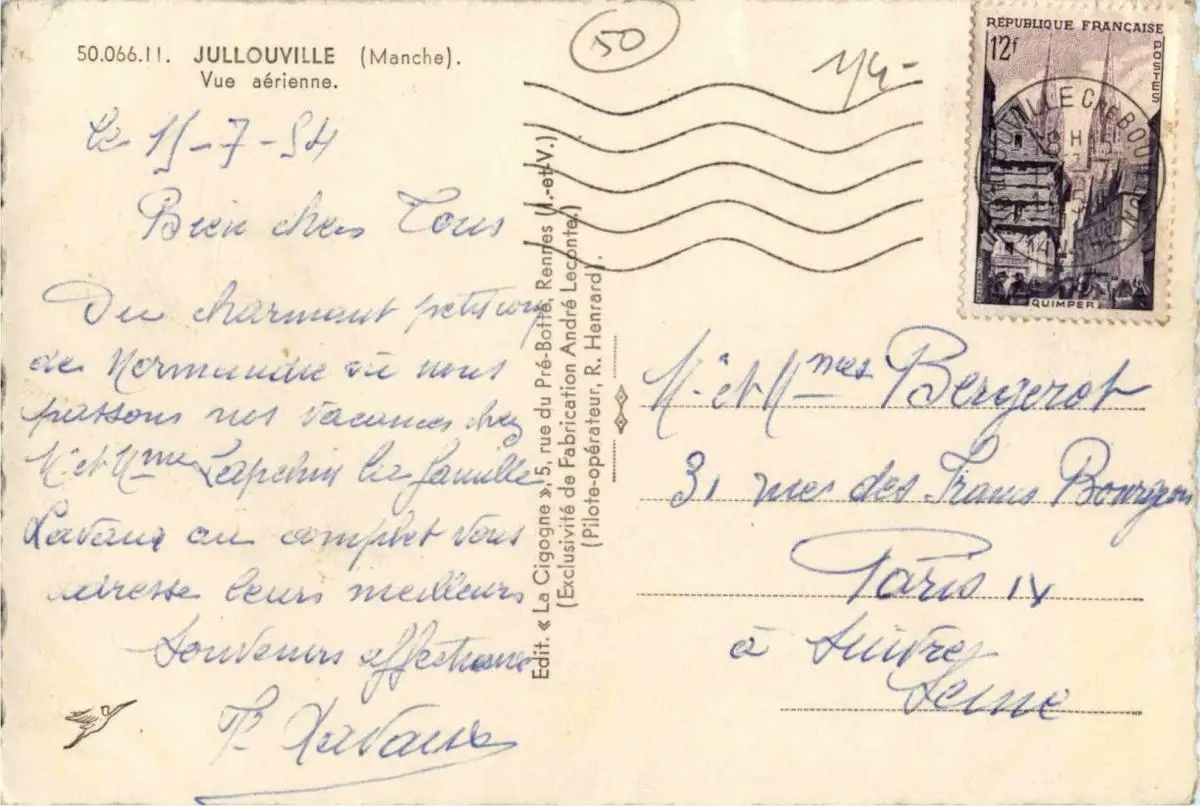 50.066.11. JULLOUVILLE (Manche).
Vue aérienne.
Le 15-7-54
Bien chers Tous
Du charmant petit coin
de Normandie où nous
passons nos vacances chez
Mr et Mme la famille
Lavaux au complet vous
adresse leurs meilleurs
Souvenirs affectueux
Lavaux
Edit. « La Cigogne », 5, rue du Pré-Botté, Rennes (I.-et-V.)
(Exclusivité de Fabrication André Leconte.)
(Pilote-opérateur, R. Henrard).
50
14-
RÉPUBLIQUE FRANÇAISE
12f
POSTES
QUIMPER
Mr et Mmes Bergerot
31 rue des Francs Bourgeois
Paris IV
à suivre
Seine